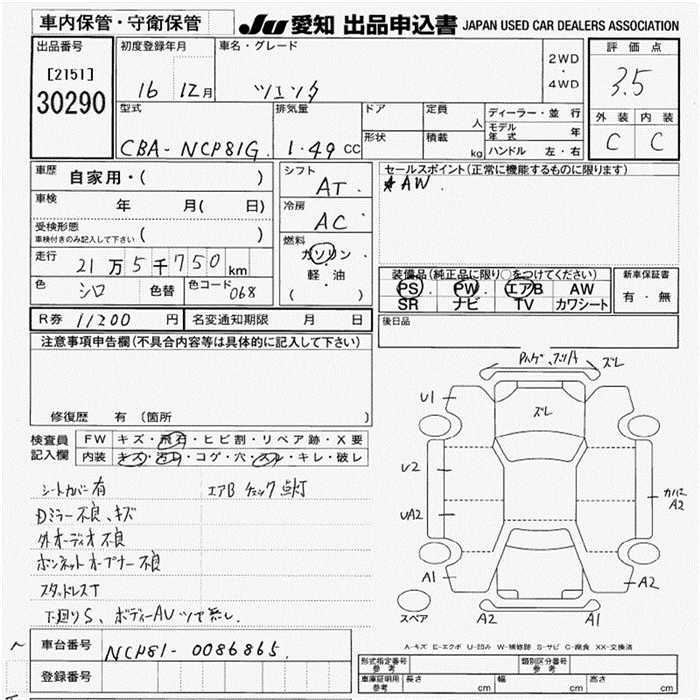 車内保管・守衛保管
JU 愛知 出品申込書 JAPAN USED CAR DEALERS ASSOCIATION
出品番号
[2151]
30290
初度登録年月
16 12月
車名・グレード
2WD
・
4WD
評価点
3.5
外装 内装
C C
型式
CBA-NCP81G.
排気量
1.49 CC
ドア
形状
定員
人
積載
kg
ディーラー・並行
モデル年式 年
ハンドル 左・右
車歴
自家用・( )
車検
年 月( 日)
受検形態
車検付きのみ記入して下さい ( )
走行
21万5千750 km
色
シロ 色替
色コード 068
シフト
AT.
冷房
AC
燃料
ガソリン・
軽油
( )
セールスポイント(正常に機能するものに限ります)
AW.
装備品(純正品に限り○をつけてください)
PS PW エアB AW
SR ナビ TV カワシート
新車保証書
有・無
後日品
R券 11200 円
名変通知期限 月 日
注意事項申告欄(不具合内容等は具体的に記入して下さい)
修復歴 有(箇所 )
検査員
記入欄
FW キズ・飛石・ヒビ割・リペア跡・X要
内装 キズ・汚レ・コゲ・穴・スレ・キレ・破レ
シートカバー有 エアB チェック点灯
Dミラー不良、キズ
外オーディオ不良
ボンネットオープナー不良
スタッドレスT
下廻りS、ボディーAU
ズレ
ズレ
U1
U2
UA2
A1
カバーA2
A2
A2
A1
スペア
A-キズ E-エクボ U-凹み W-補修跡 S-サビ C-腐食 XX-交換済
車台番号
NCP81-0086865.
登録番号
型式指定番号
参考
類別区分番号
参考
車庫証明用
参考
長さ cm
幅 cm
高さ cm